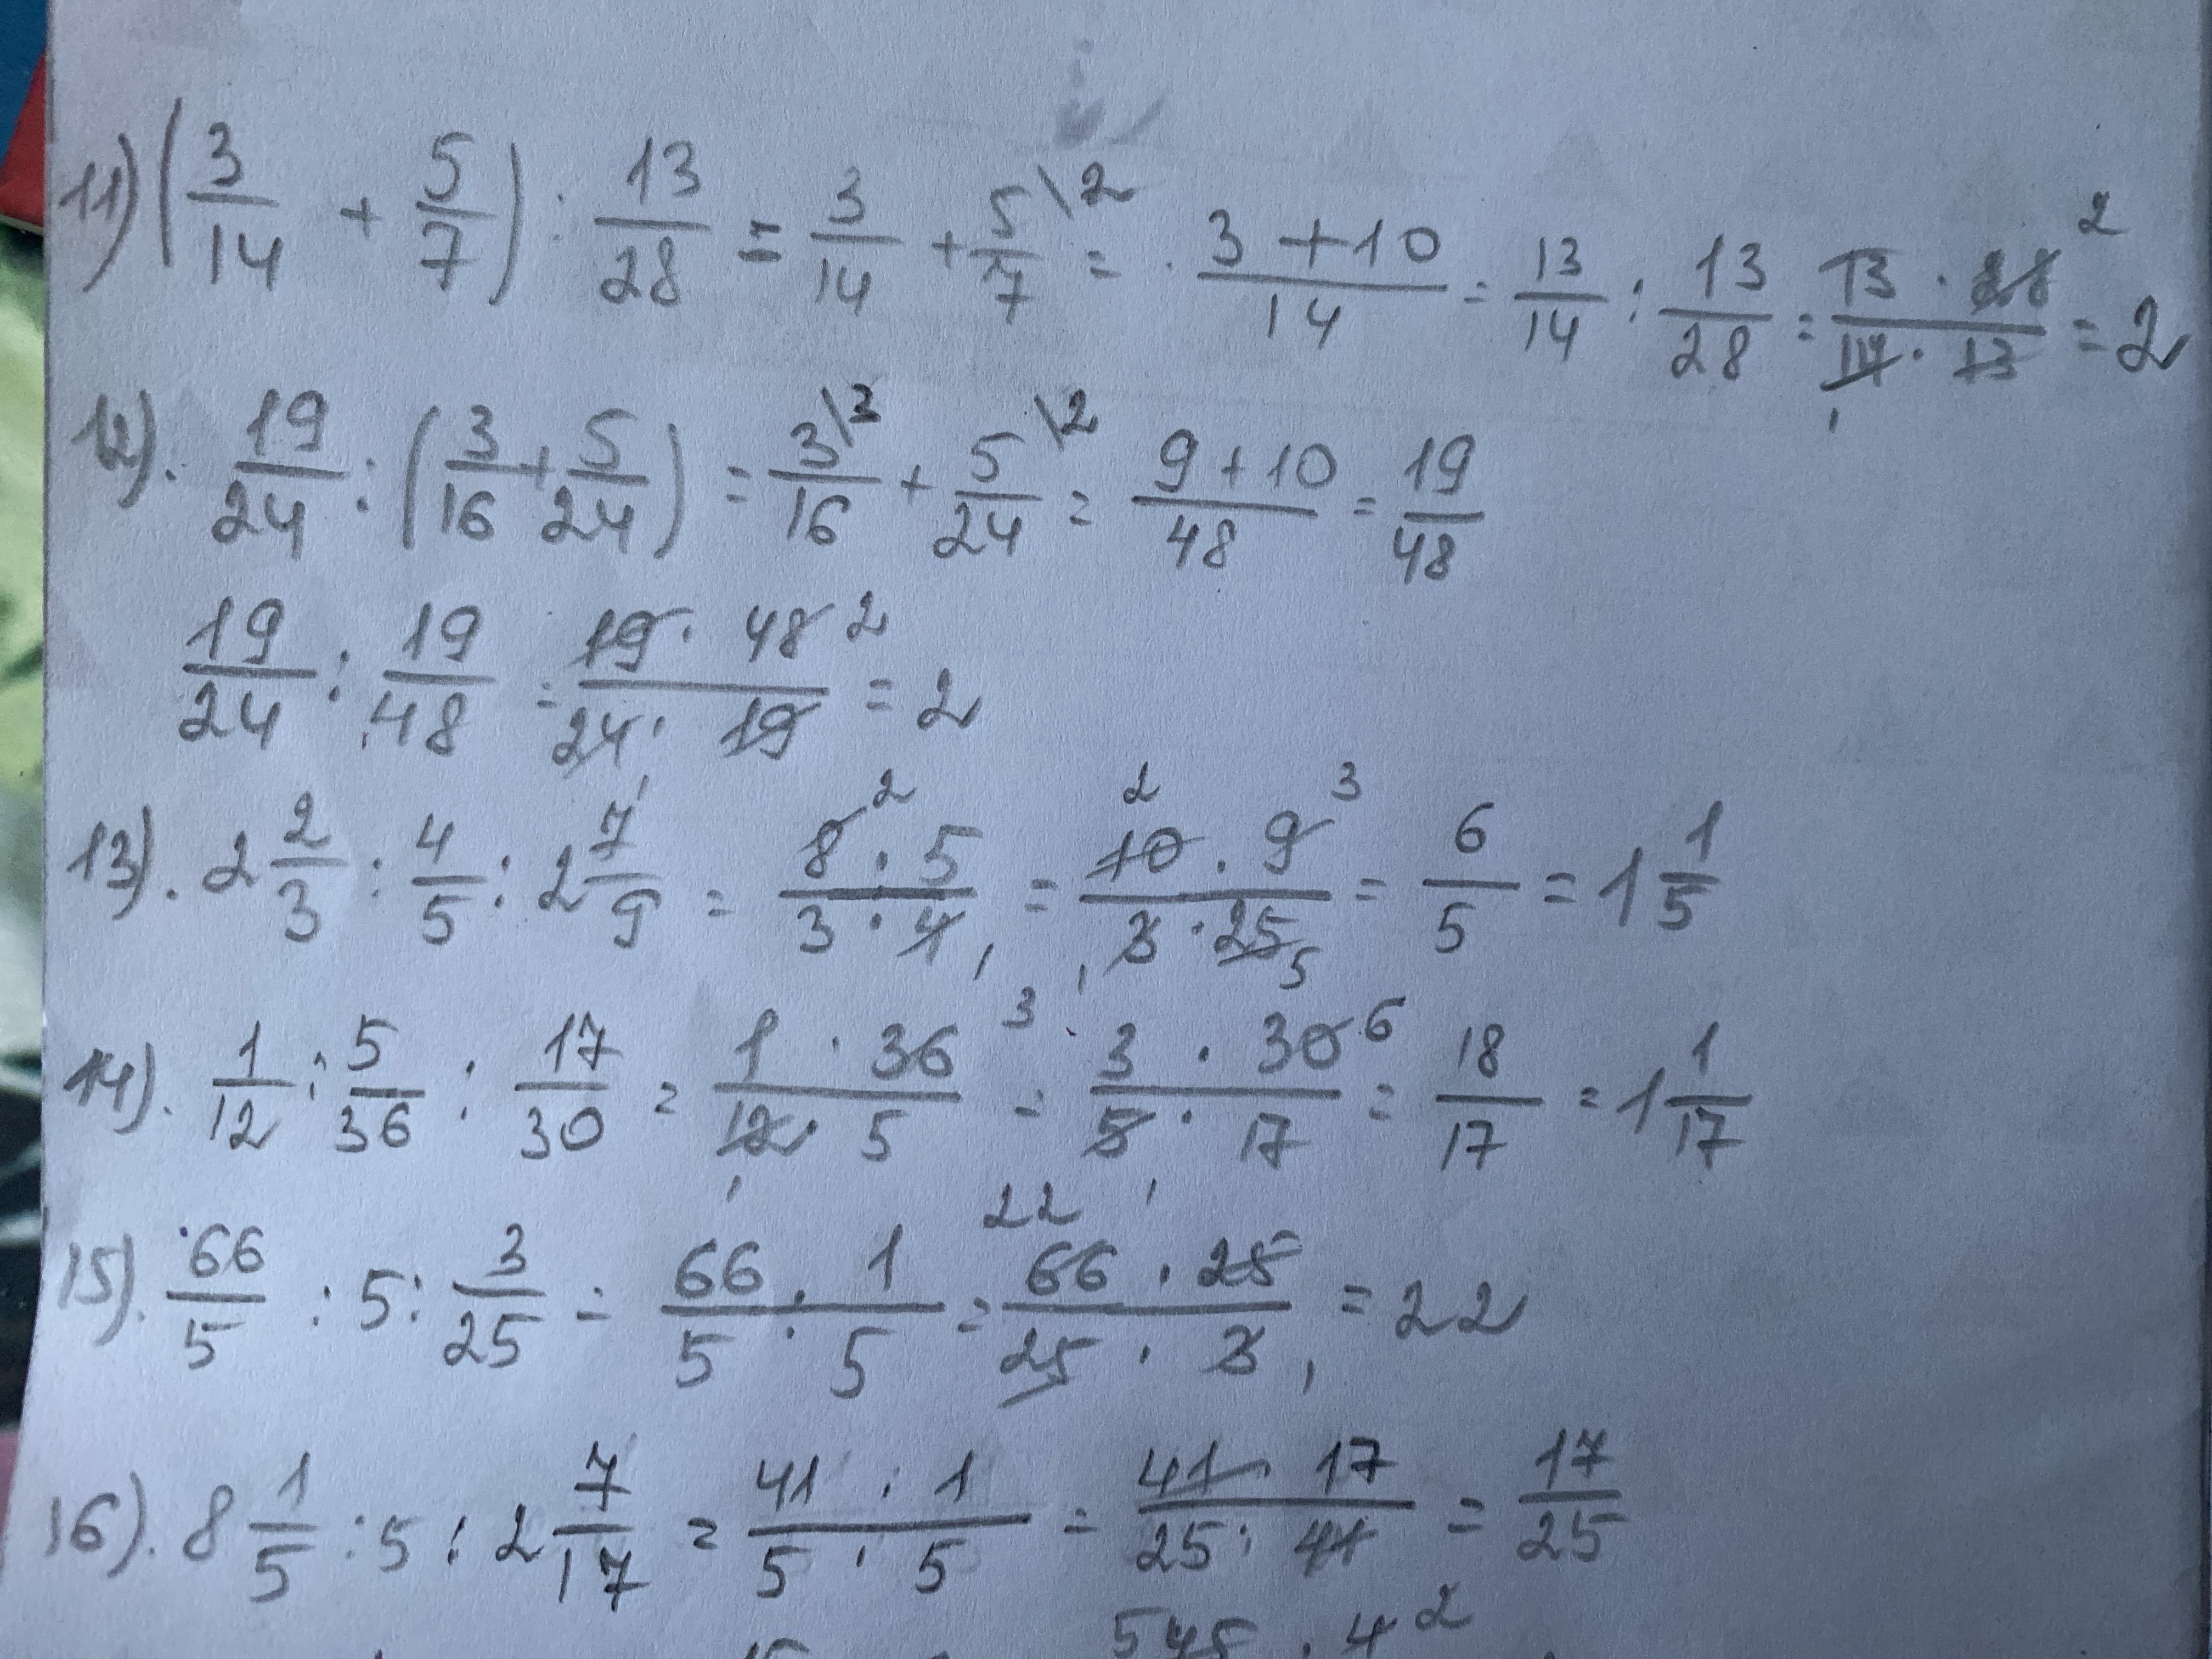 11) (3/14 + 5/7) : 13/28 = 3/14 + 5/7 \2 = 3+10/14 = 13/14 : 13/28 = 13 · 28 2/14 1 · 13 = 2
12). 19/24 : (3/16 + 5/24) = 3 \3/16 + 5 \2/24 = 9+10/48 = 19/48
19/24 : 19/48 = 19 · 48 2/24 1 · 19 = 2
13). 2 2/3 : 4/5 : 2 7/9 = 8 2 · 5/3 · 4 1 = 10 2 · 9 3/3 1 · 25 5 = 6/5 = 1 1/5
14). 1/12 : 5/36 : 17/30 = 1 · 36 3/12 1 · 5 = 3 · 30 6/5 1 · 17 = 18/17 = 1 1/17
15). 66/5 : 5 : 3/25 = 66 · 1/5 · 5 = 66 22 · 25/25 · 3 1 = 22
16). 8 1/5 : 5 : 2 7/17 = 41 · 1/5 · 5 = 41 · 17/25 · 41 = 17/25